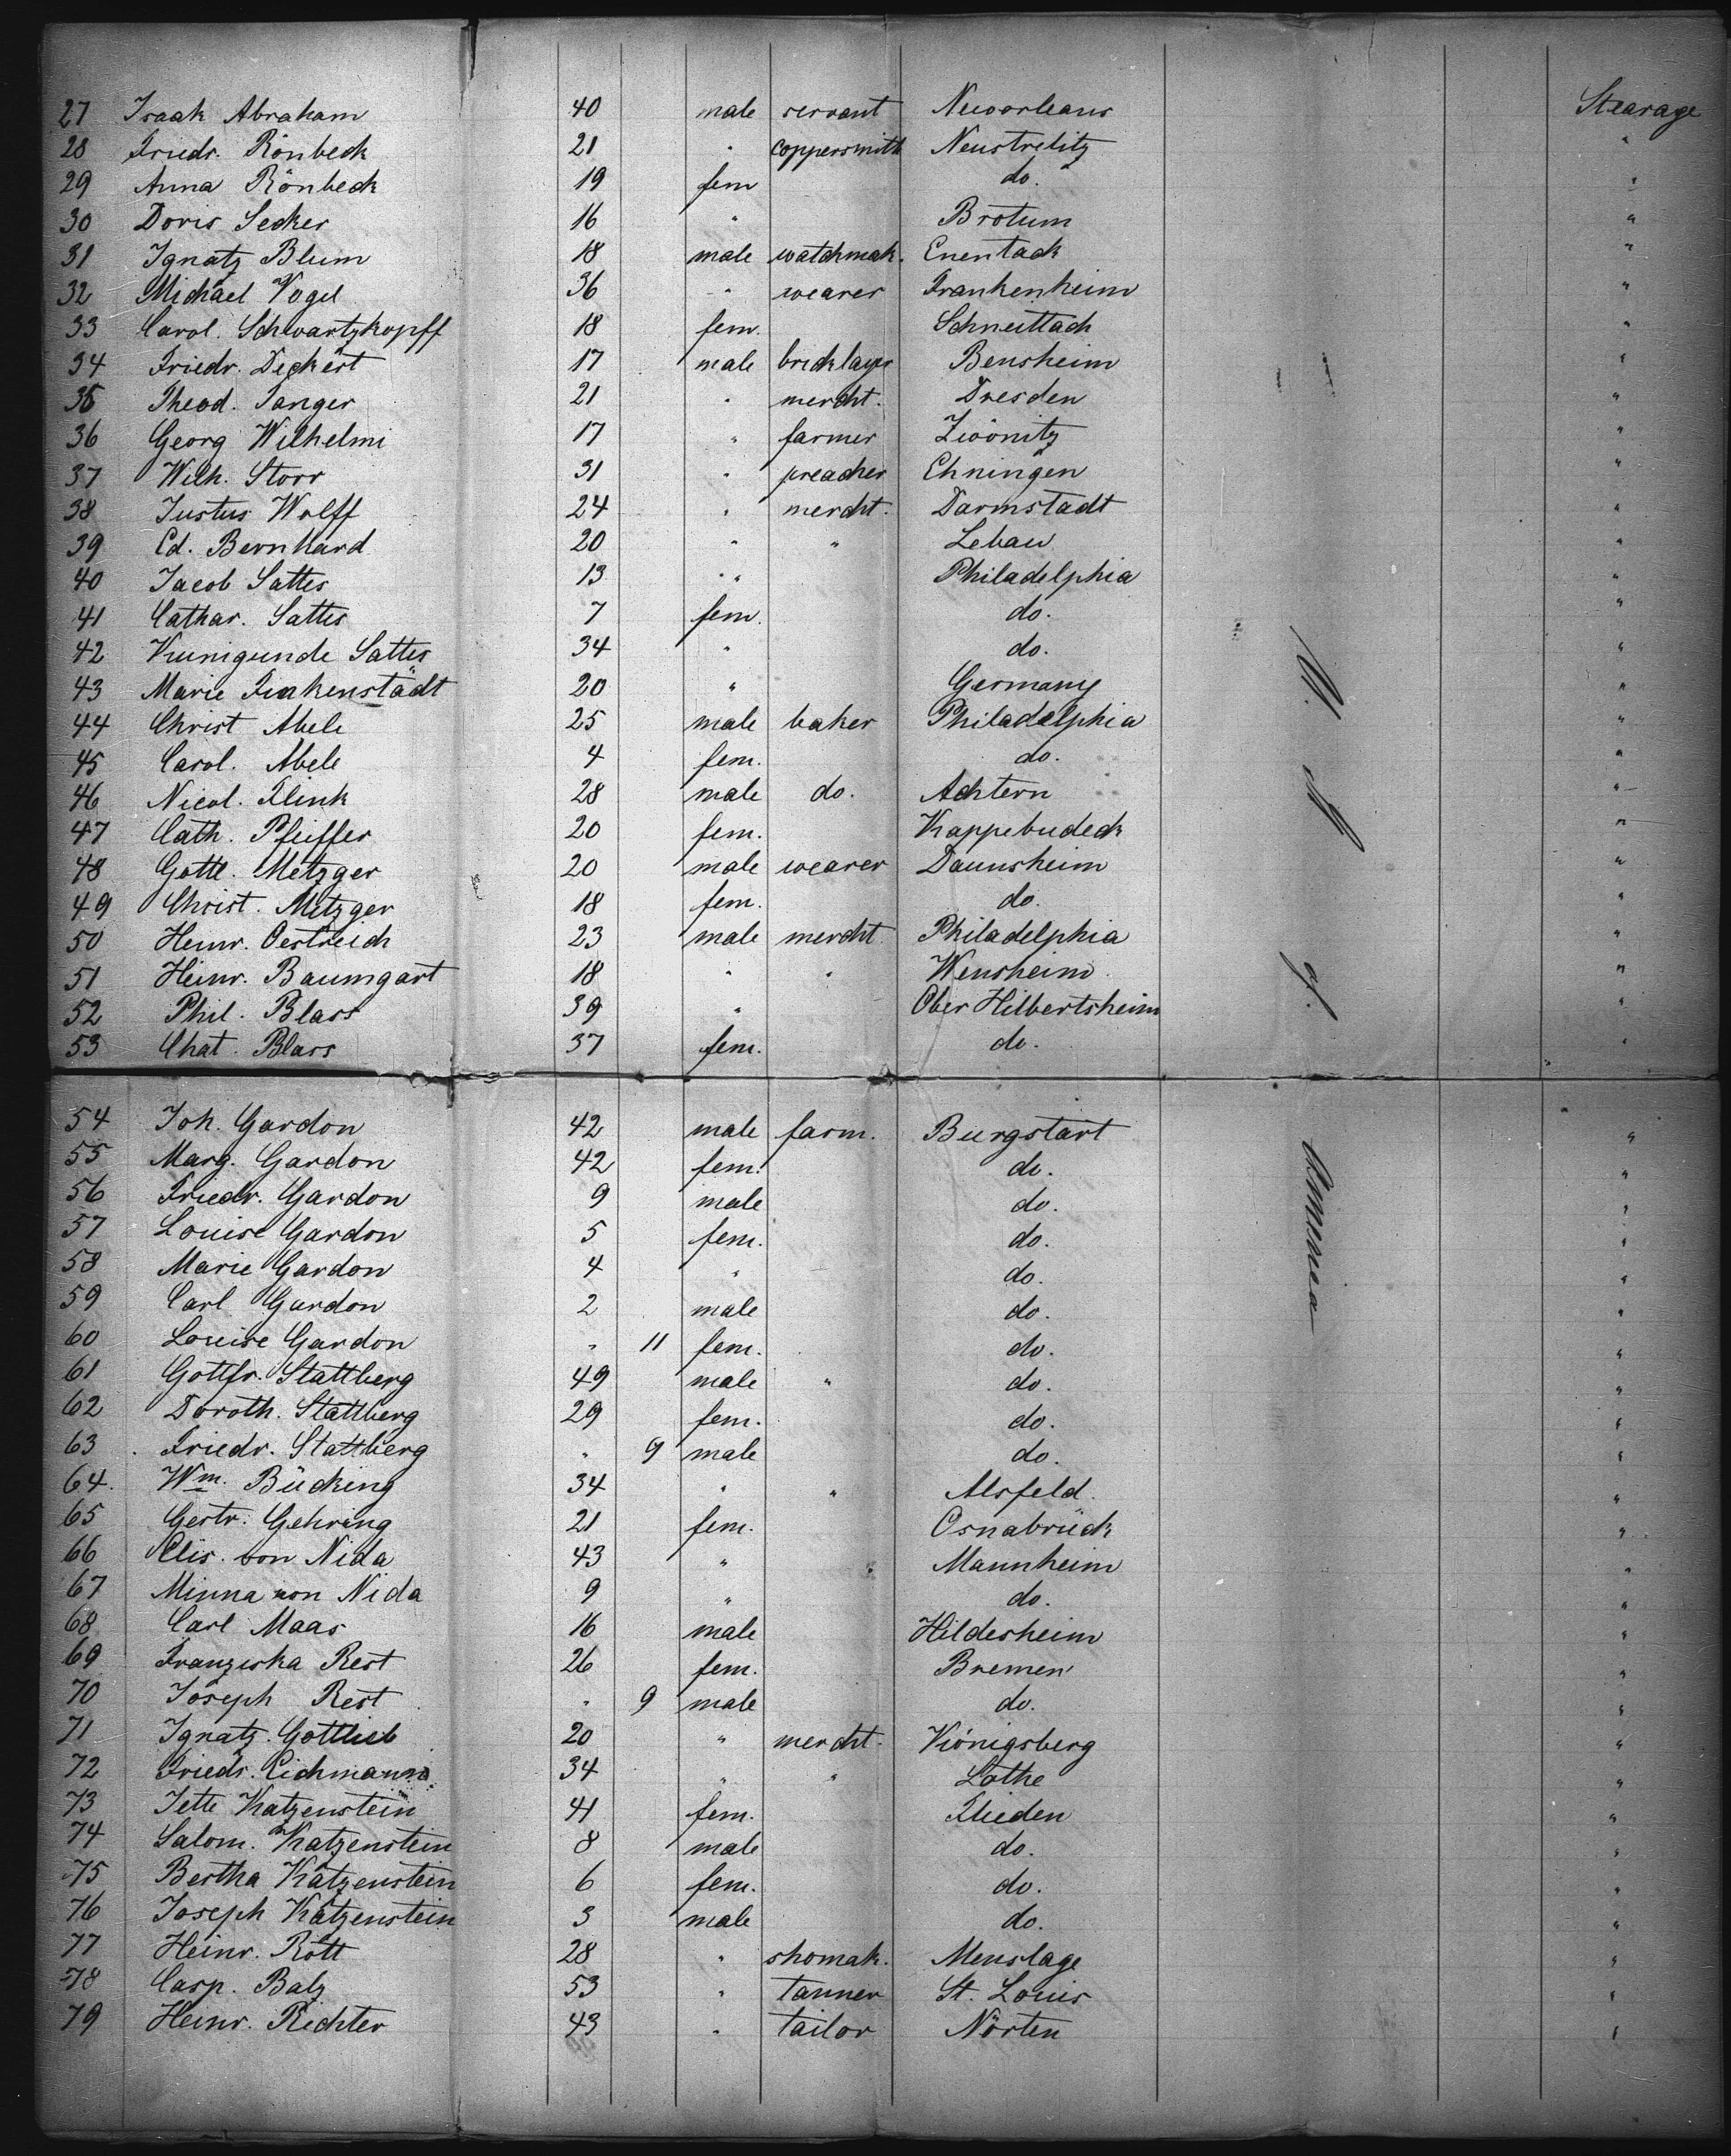 27 Isaak Abraham 40 male servant Neworleans Stearage
28 Friedr. Rönbeck 21 " coppersmith Neustrelitz "
29 Anna Rönbeck 19 fem do. "
30 Doris Secker 16 " Brotum "
31 Ignatz Blum 18 male watchmak. Enentach "
32 Michael Vogel 36 " wearer Frankenheim "
33 Carol. Schwartzkopff 18 fem. Schneittach "
34 Friedr. Deckert 17 male bricklayer Bensheim "
35 Theod. Janger 21 " mercht. Dresden "
36 Georg Wilhelmi 17 " farmer Zwönitz "
37 Wilh. Storr 31 " preacher Ehningen "
38 Justus Wolff 24 " mercht. Darmstadt "
39 Ed. Bernhard 20 " " Lebau "
40 Jacob Sattes 13 " " Philadelphia "
41 Cathar. Sattes 7 fem. do. "
42 Kunigunde Sattes 34 " do. "
43 Marie Finkenstädt 20 " Germany "
44 Christ Abele 25 male baker Philadelphia "
45 Carol. Abele 4 fem. do. "
46 Nicol. Flink 28 male do. Achtern "
47 Cath. Pfeiffer 20 fem. Kappebudeck "
48 Gottl. Metzger 20 male wearer Daunsheim "
49 Christ. Metzger 18 fem. do. "
50 Heinr. Oestreich 23 male mercht. Philadelphia "
51 Heinr. Baumgart 18 " " Wensheim "
52 Phil. Blass 39 " Ober Hilbertsheim "
53 Chat. Blass 37 fem. do. "
U. St. of America
54 Joh. Gardon 42 male farm. Burgstart "
55 Marg. Gardon 42 fem. do. "
56 Friedr. Gardon 9 male do. "
57 Louise Gardon 5 fem. do. "
58 Marie Gardon 4 " do. "
59 Carl Gardon 2 male do. "
60 Louise Gardon " 11 fem. do. "
61 Gottfr. Stattberg 49 male " do. "
62 Doroth. Stattberg 29 fem. do. "
63 Friedr. Stattberg " 9 male do. "
64. Wm. Bücking 34 " " Alsfeld. "
65 Gertr. Gehring 21 fem. Osnabrück "
66 Elis. von Nida 43 " Mannheim "
67 Minna von Nida 9 " do. "
68 Carl Maas 16 male Hildesheim "
69 Franziska Rest 26 fem. Bremen "
70 Joseph Rest " 9 male do. "
71 Ignatz Gottlieb 20 " mercht. Königsberg "
72 Friedr. Eichmann 34 " " Lothe "
73 Jette Katzenstein 41 fem. Flieden "
74 Salom. Katzenstein 8 male do. "
75 Bertha Katzenstein 6 fem. do. "
76 Joseph Katzenstein 3 male do. "
77 Heinr. Rott 28 " shomak. Menslage "
78 Casp. Balz 53 " tanner St. Louis "
79 Heinr. Richter 43 " tailor Nörten "